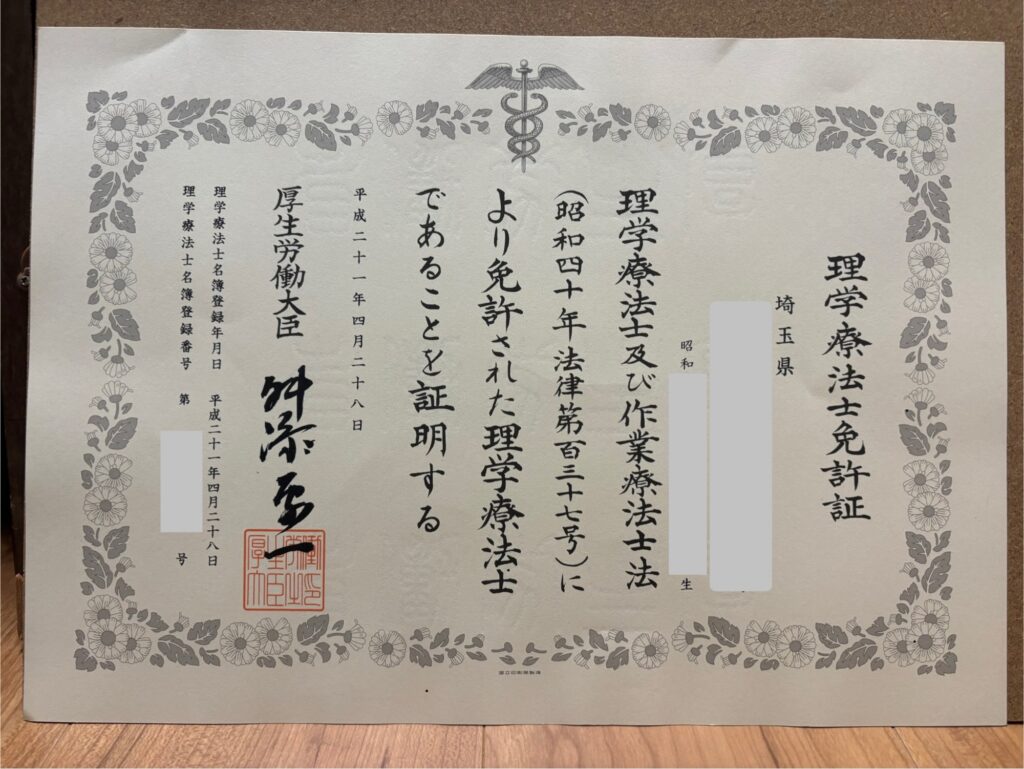 理学療法士免許証
埼玉県
昭和
生
理学療法士及び作業療法士法
(昭和四十年法律第百三十七号)に
より免許された理学療法士
であることを証明する
平成二十一年四月二十八日
厚生労働大臣 舛添要一
厚生労働大臣之印
理学療法士名簿登録年月日 平成二十一年四月二十八日
理学療法士名簿登録番号 第 号
国立印刷局製造